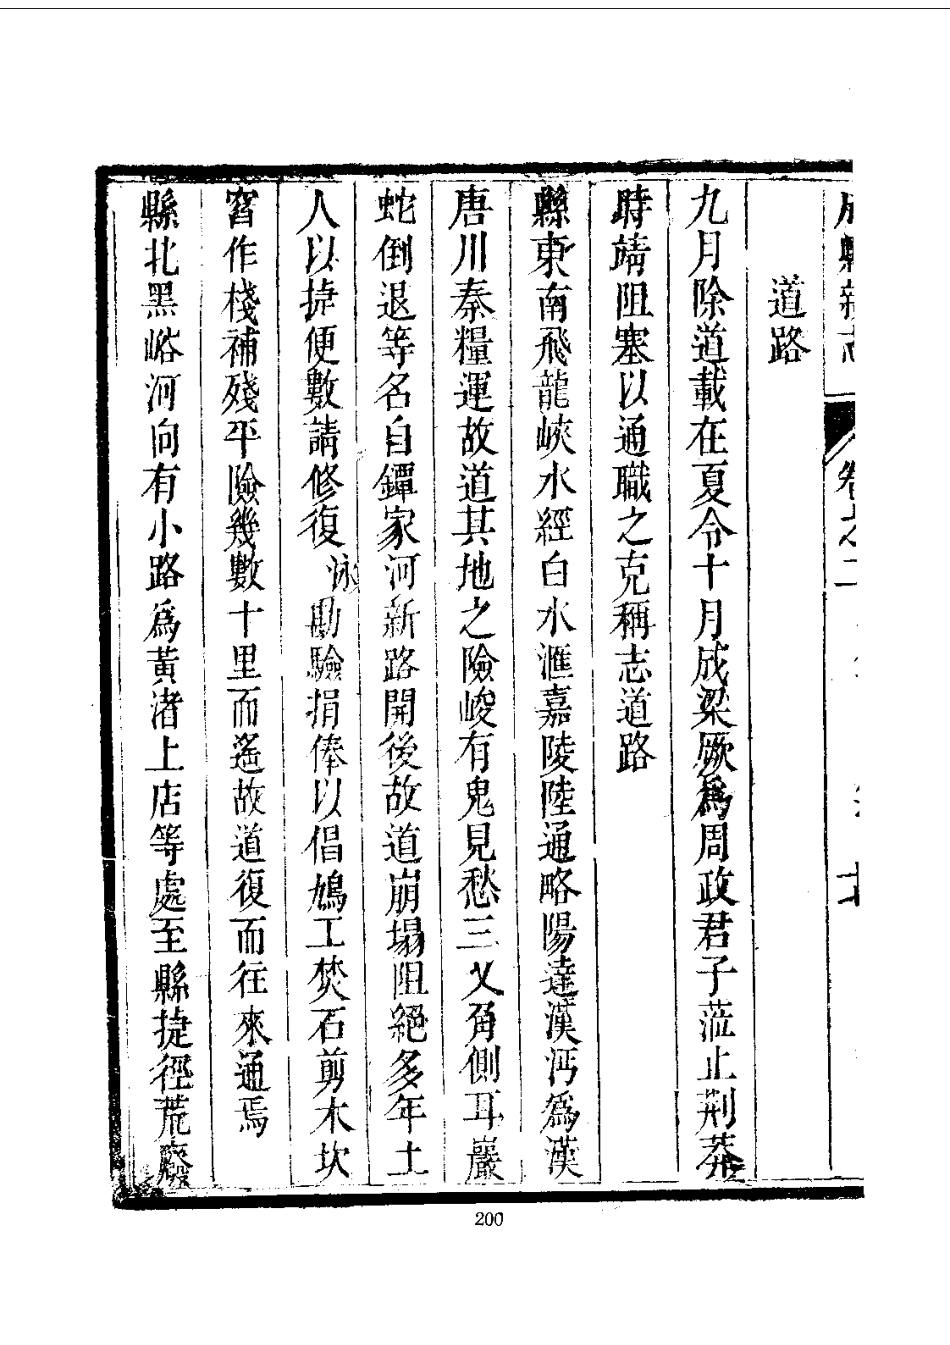 成縣新志 卷之二
道路
九月除道載在夏令十月成梁厥爲周政君子蒞止荆莽
時靖阻塞以通職之克稱志道路
縣東南飛龍峽水經白水滙嘉陵陸通略陽達漢沔爲漢
唐川秦糧運故道其地之險峻有鬼見愁三乂角側耳巖
蛇倒退等名自鐔家河新路開後故道崩塌阻絕多年土
人以捷便數請修復泳勘驗捐俸以倡鳩工焚石剪木坎
窞作棧補殘平險幾數十里而遙故道復而往來通焉
縣北黑峪河向有小路爲黃渚上店等處至縣捷徑荒廢
200